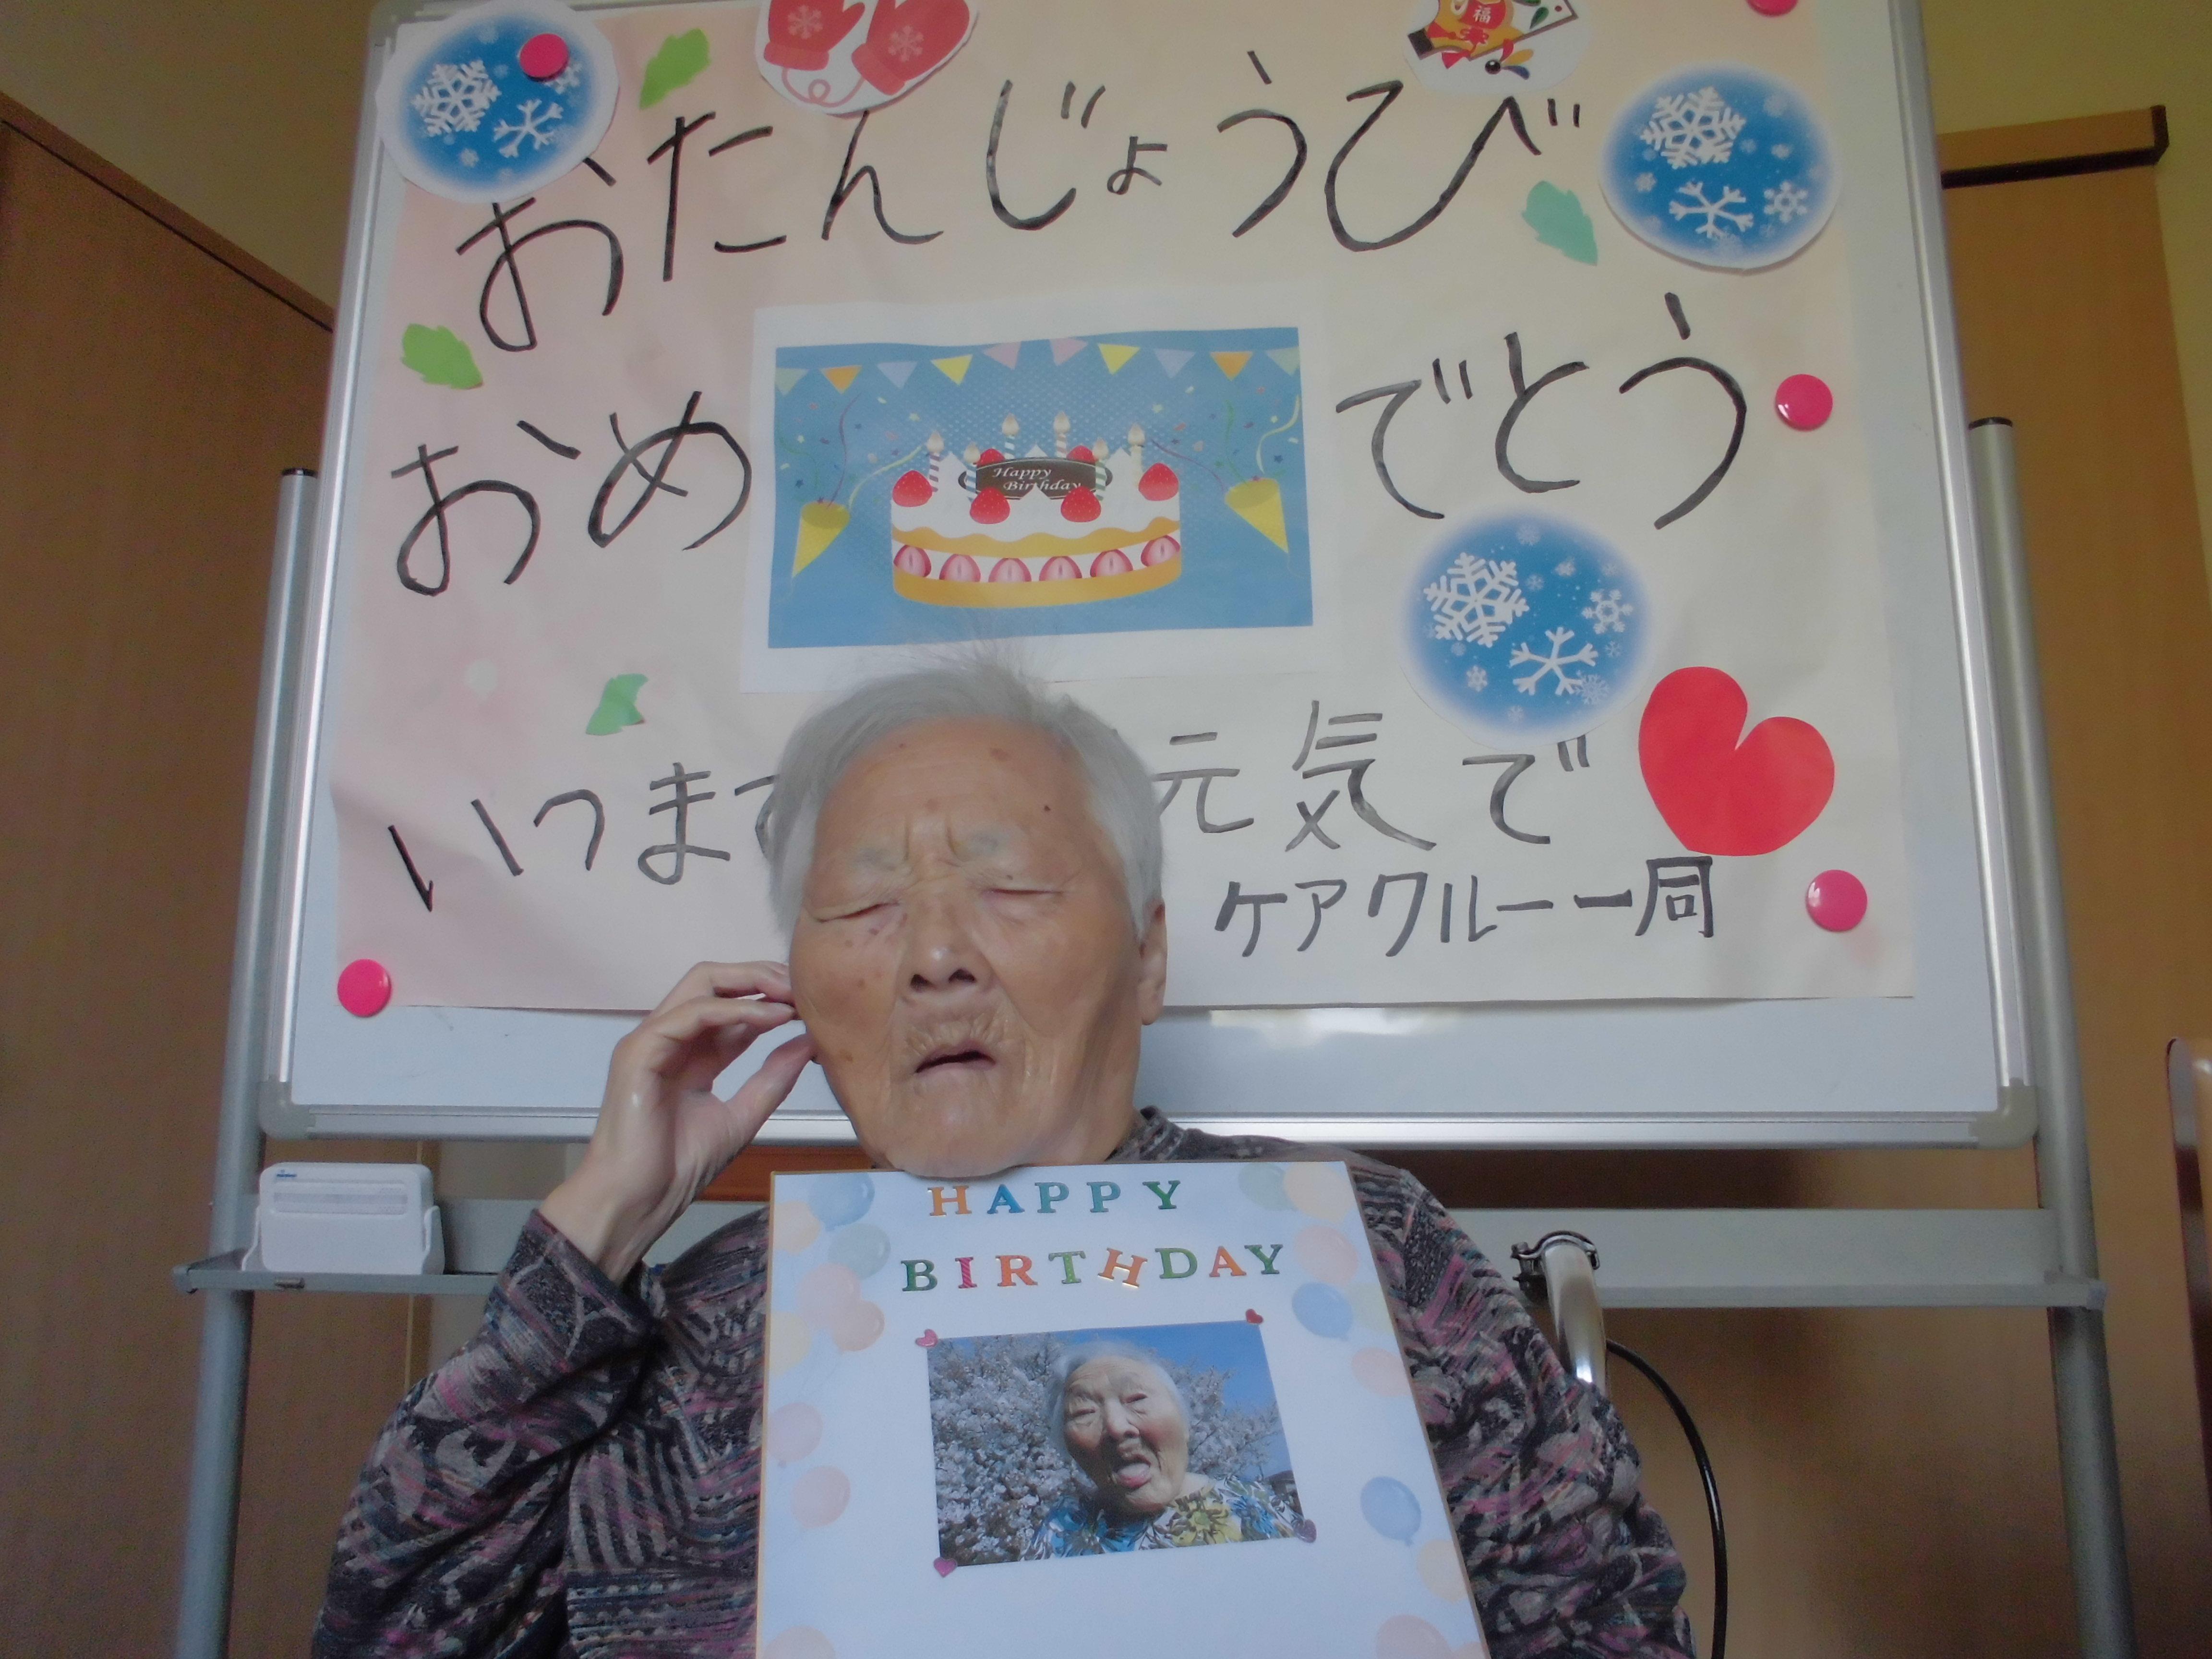 福
おたんじょうび
おめでとう
Happy
Birthday
いつまで元気で
ケアクルー一同
HAPPY
BIRTHDAY